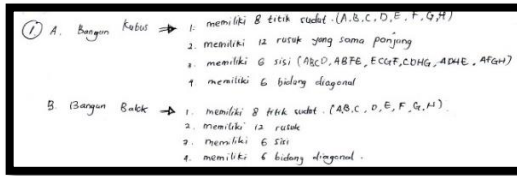 ① A. Bangun Kubus ⇒ 1. memiliki 8 titik sudut. (A,B,C,D,E,F,G,H)
2. memiliki 12 rusuk yang sama panjang
3. memiliki 6 sisi (ABCD, ABFE, ECGF, CDHG, ADHE, AFGH)
4 memiliki 6 bidang diagonal
B. Bangun Balok ⇒ 1. memiliki 8 titik sudut. (A,B,C,D,E,F,G,H).
2. memiliki 12 rusuk
3. memiliki 6 sisi
4. memiliki 6 bidang diagonal.